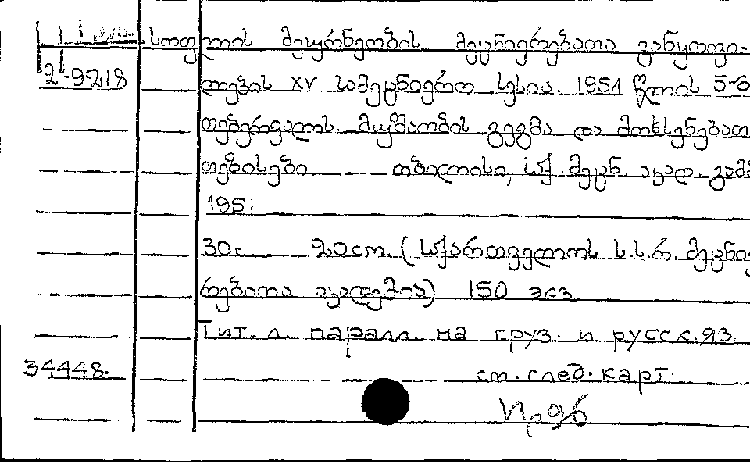 სოფლის მეურნეობის მეცნიერებათა განყოფი-
2-9218 ლების XV სამეცნიერო სესია 1951 წლის 5-6
თებერვალს. მუშაობის გეგმა და მოხსენებათა
თეზისები თბილისი, საქ. მეცნ. აკად. გამ.
195
30с. 20см. (საქართველოს ს.ს.რ. მეცნიე
რებათა აკადემია) 150 экз
Тит. л. паралл. на груз. и русск. яз.
34448. см. след. карт.